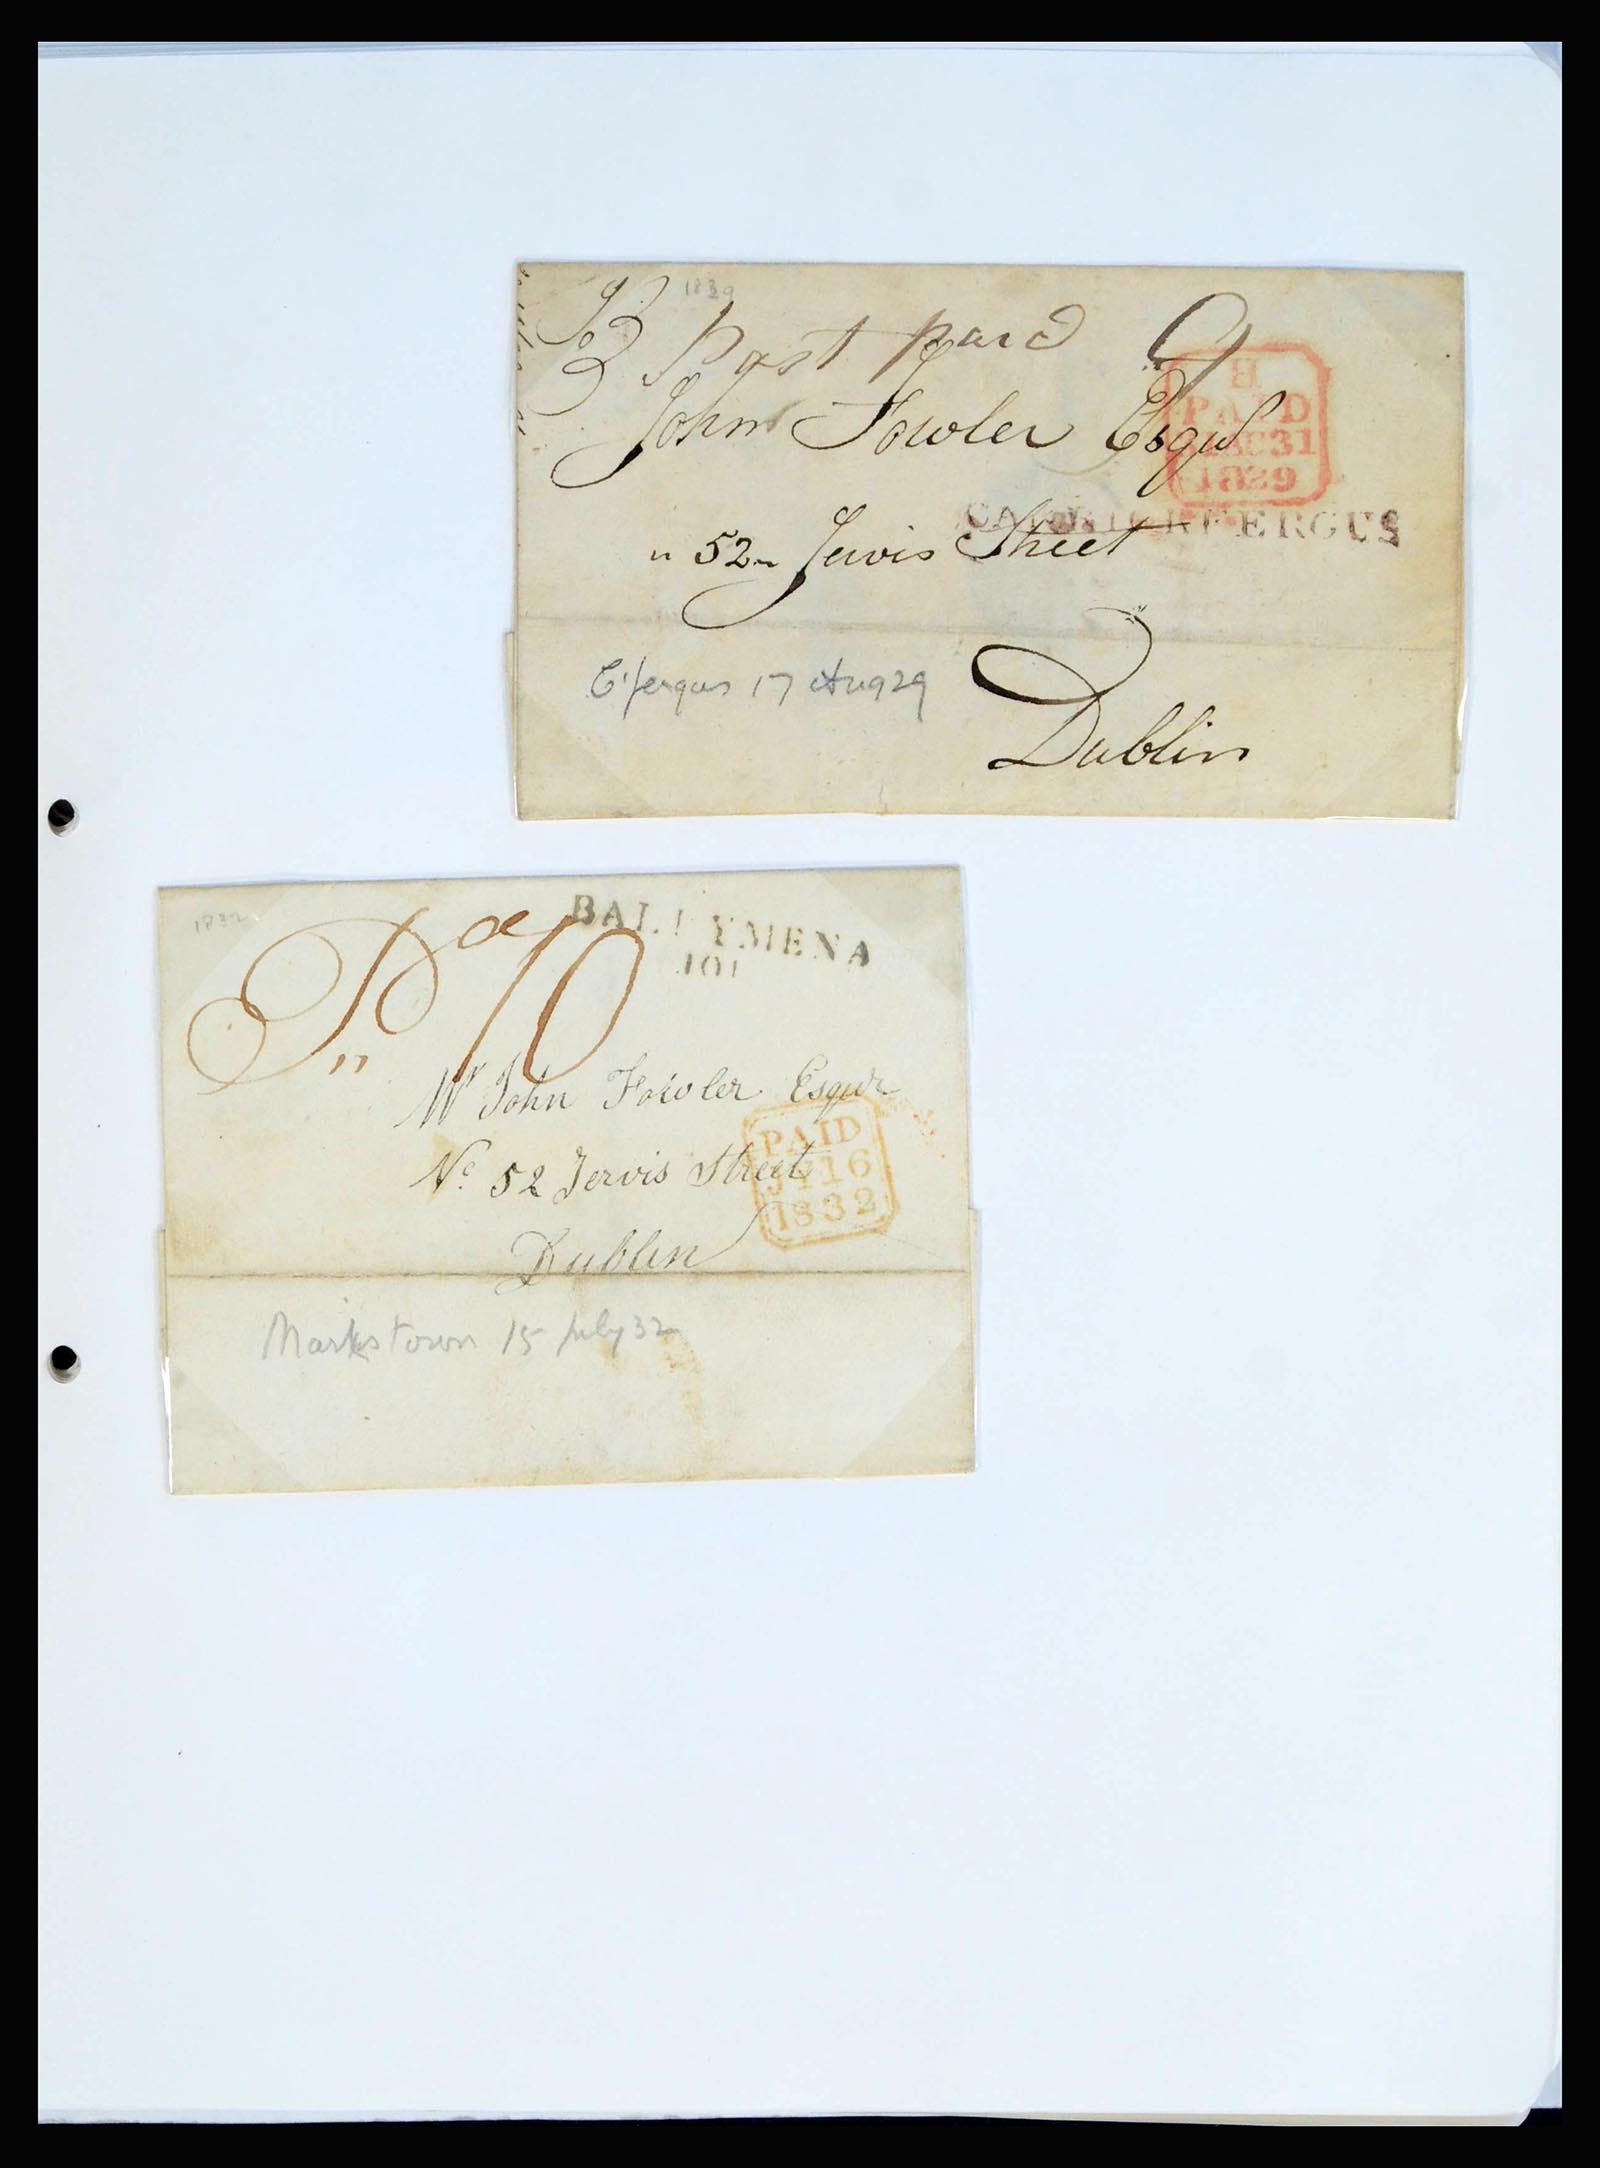 1829
Post paid 9
John Fowler Esqr
H
PAID
AU 31
1829
CARRICKFERGUS
" 52 ~ Jervis Street
Dublin
C'fergus 17 Aug 29
1832
BALLYMENA
101
Pd 10
Mr John Fowler Esqur
No 52 Jervis Street
Dublin
PAID
JY 16
1832
Markstown 15 July 32